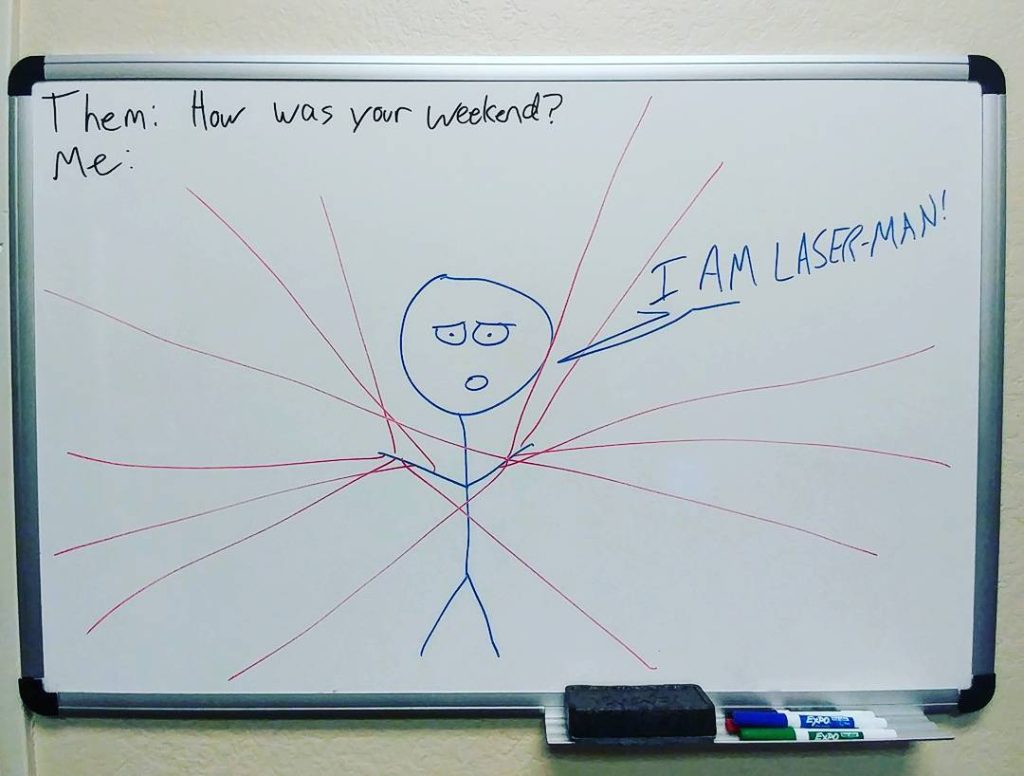 Them: How was your weekend?
Me:
I AM LASER-MAN!
EXPO
EXPO